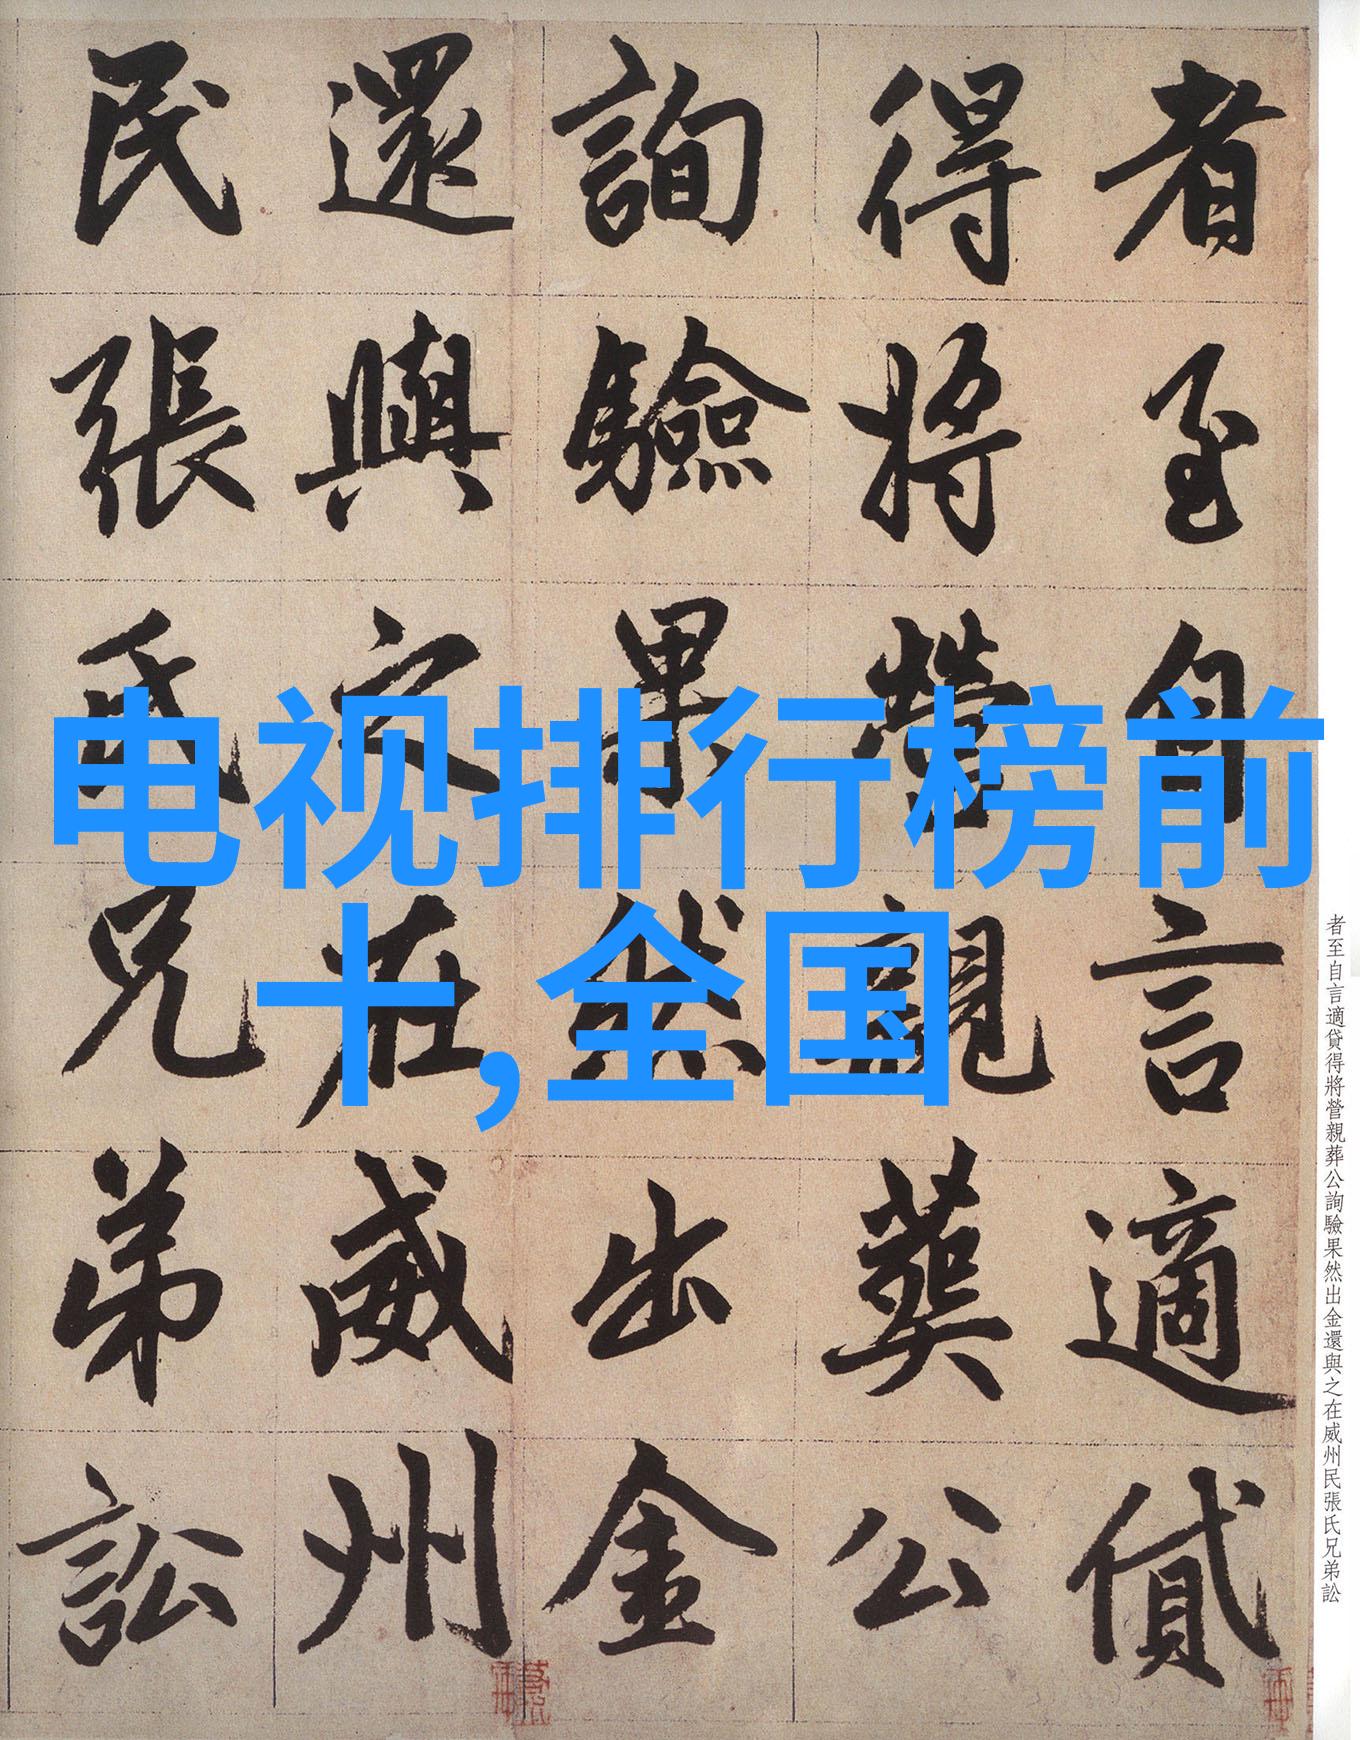 者至自言適貸
得將營親葬公
詢驗果然出金
還與之在威州
民張氏兄弟訟
电视排行榜前
十,全国
者至自言適貸得將營親葬公詢驗果然出金還與之在威州民張氏兄弟訟